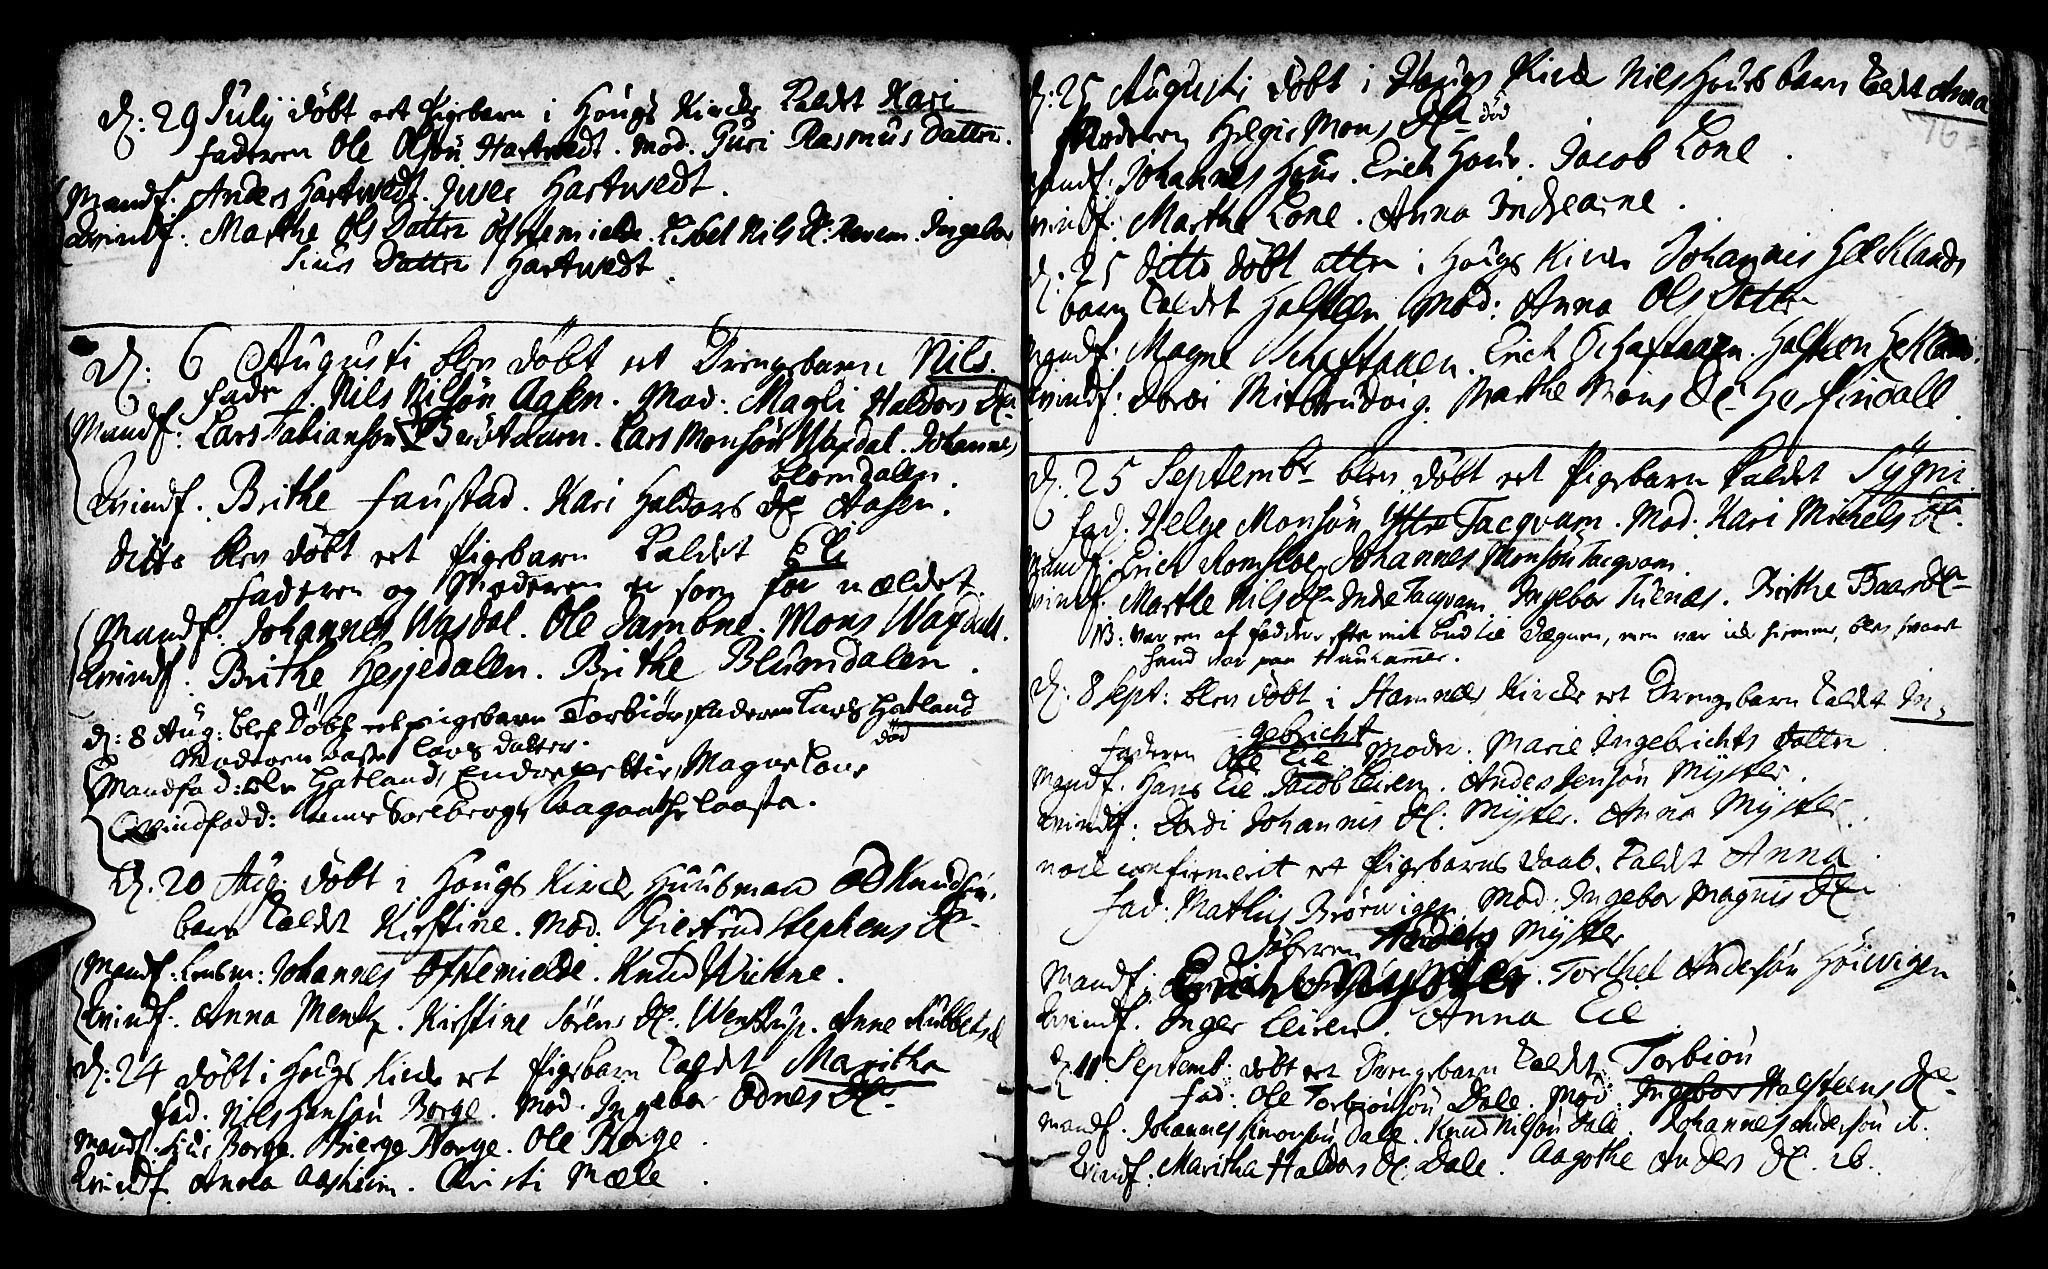 D: 29 July döbt et Pigebarn i Hougs Kirche kaldet Kari
faderen Ole Olsön Hartvedt. Mod. Guri Rasmus Datter.
Mandf: Anders Hartvedt. Iver Hartvedt.
Qvindf: Marthe Ols Datter Ostemielde. Lisbet Nils D: Ingebor
Siurs Datter Hartvedt.
D: 6 Augusti blev döbt et Drengebarn Nils.
fader Nils Nilsön Aasen. Mod: Magli Haldors Dr
Mandf: Lars Fabiansön Lars Monsön Wasdal. Johannes
Blomdalen.
Qvindf. Brithe Faustad. Kari Haldors Dr Aasen.
ditto blev döbt et Pigebarn kaldet Eli
Faderen og Moderen er som før meldet.
Mandf. Johannes Wasdal. Ole Mons Wasdal.
Qvindf. Brithe Hesjedalen. Brithe Blumdalen.
D: 8 Aug: blef Döbt et pigebarn Torbiör, Faderen Lars Hatland
Moderen Lars datter. död
Mandfad: Ole Hatland, Endre Magne Lone
Qvindfadd: Sorlberg, Aagaathe
D. 20 Aug. döbt i Hougs Kirche Huusmand Od Knudsön,
barn kaldet Kirstine. Mod: Giertrud Stephens Dr
Mandf: Lensm: Johannes Ostemielde. Knud Wichne.
Qvindf. Anna Mentz. Kirstine Sörens D. Wentrup. Anne
D: 24 döbt i Hougs Kirche et Pigebarn kaldet Maritha
fad. Nils Hansön Borge. Mod. Ingebor Odnes Dr
Mandf: Borge. Bierge Borge. Ole Borge.
Qvindf. Anna Aasheim. Christi Mæle.
D: 25 Augusti döbt i Hougs Kirche Nils Houes barn kaldet Anna
Moderen Helgie Mons Dr död
76
Mandf. Johannes Houe. Erich Houe. Jacob Lone.
Qvindf: Marthe Lone. Anna Indre Arne.
D: 25 ditto döbt atter i Hougs Kirche Johannis Hecklands
barn kaldet Halsteen Mod: Anna Ols Datter
Mandf: Magne Schaftaaen. Erich Schaftaaen. Halsteen Hekland.
Qvindf: Mitbrudvig. Marthe Mons Dr Herfindall.
D. 25 Septembr blev döbt et Pigebarn kaldet Sÿgni
fad. Helge Monsön Ytre Tacqvam. Mod: Kari Michels Dr
Mandf. Erich Romsloe, Johannes Monsön Tacqvam.
Qvindf. Marthe Nils Dr Indre Tacqvam, Ingebor Brithe Baar Dr
NB: var en af men var icke
hand var paa
D: 8 Sept: blev döbt i Hamnes Kirche et Drengebarn kaldet In-
gebricht
faderen Ole Eie Moder. Marie Ingebrichts Datter
Mandf. Hans Eie. Jacob Leiren. Anders Jensön Myster.
Qvindf: Johannis D: Myster. Anna Myster.
nock confirmerit et Pigebarns daab. kaldet Anna.
fad. Mathis Brörvigen. Mod. Ingebor Magnis Dr
döberen Anders Myster
Mandf: Erich Myster. Torchel Andersön Höivigen
Qvindf. Inger Leiren. Anna Eie
D: 11 Septemb: döbt et Drengebarn kaldet Torbiön
fad: Ole Torbiönsön Dale. Mod. Ingebor Halsteens Dr
Mandf. Johannes Dale. Knud Nilsön Dale. Johannes Andersön ib.
Qvindf. Maritha Haldors D. Dale. Aagothe Anders D. ib.